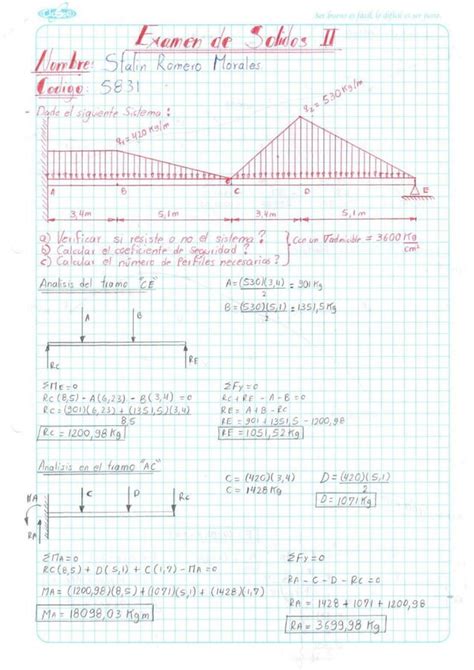 Ser bueno es fácil, lo difícil es ser justo.
Examen de Solidos II
Nombre: Stalin Romero Morales
Codigo: 5831
Dado el siguiente Sistema:
q1 = 420 Kg/m
q2 = 530 Kg/m
A B C D E
3,4m 5,1m 3,4m 5,1m
a) Verificar si resiste o no el sistema?
b) Calcular el coeficiente de Seguridad?
c) Calcular el número de Perfiles necesarios?
Con un σadmisible = 3600 Kg/cm²
Analisis del tramo "CE"
A = (530)(3,4)/2 = 901 Kg
B = (530)(5,1)/2 = 1351,5 Kg
A B
Rc RE
ΣME = 0
Rc(8,5) - A(6,23) - B(3,4) = 0
Rc = (901)(6,23) + (1351,5)(3,4)/8,5
Rc = 1200,98 Kg
ΣFy = 0
Rc + RE - A - B = 0
RE = A + B - Rc
RE = 901 + 1351,5 - 1200,98
RE = 1051,52 Kg
Analisis en el tramo "AC"
C = (420)(3,4)
C = 1428 Kg
D = (420)(5,1)/2
D = 1071 Kg
MA C D Rc
RA
ΣMA = 0
RC(8,5) + D(5,1) + C(1,7) - MA = 0
MA = (1200,98)(8,5) + (1071)(5,1) + (1428)(1,7)
MA = 18098,03 Kg·m
ΣFy = 0
RA - C - D - Rc = 0
RA = 1428 + 1071 + 1200,98
RA = 3699,98 Kg